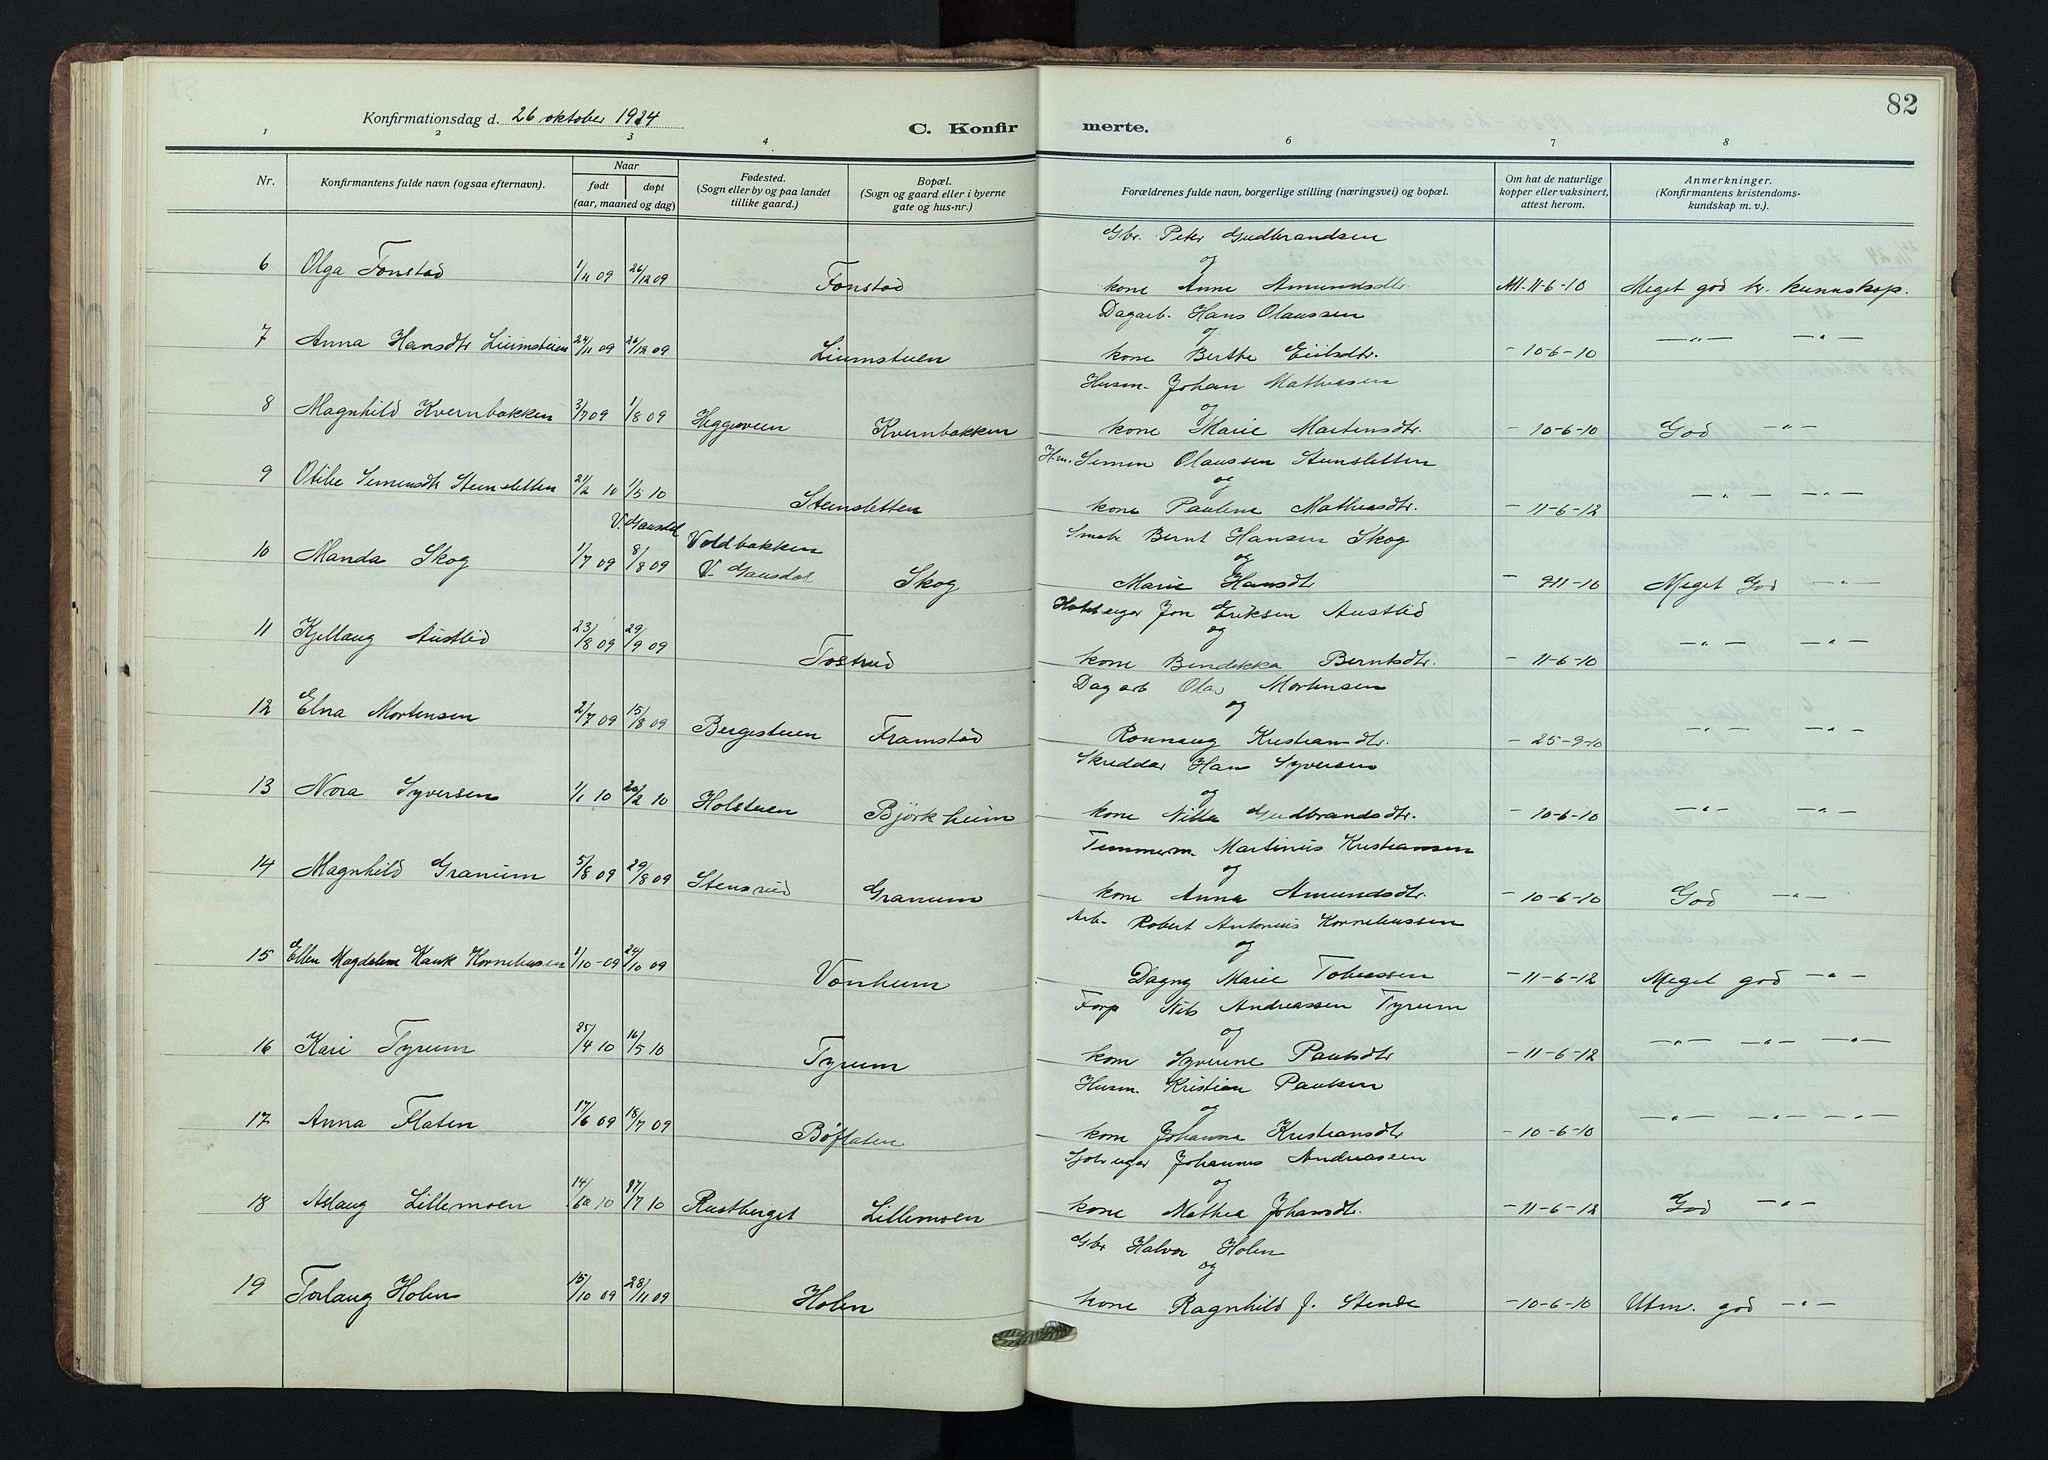 82
Konfirmationsdag d. 26 oktober 1924
C. Konfirmerte.
1 2 3 4 6 7 8
Nr.
Konfirmantens fulde navn (ogsaa efternavn).
Naar
født døpt
(aar, maaned og dag)
Fødested.
(Sogn eller by og paa landet
tillike gaard.)
Bopæl.
(Sogn og gaard eller i byerne
gate og hus-nr.)
Forældrenes fulde navn, borgerlige stilling (næringsvei) og bopæl.
Om hat de naturlige
kopper eller vaksinert,
attest herom.
Anmerkninger.
(Konfirmantens kristendoms-
kundskap m. v.).
Gbr. Peter Gudbrandsen
og
6 Olga Fonstad 1/11 09 26/12 09 Fonstad kone Anne Amundsdtr. Att. 11-6-10 Meget god kr. kunnskap.
Dagarb. Hans Olaussen
og
7 Anna Hansdtr Liumstuen 24/11 09 26/12 09 Liumstuen kone Berthe Eriksdtr. - 10-6-10 —"— —"—
Husm. Johan Mathiasen
og
8 Magnhild Kvernbakken 3/7 09 1/8 09 Heggeveen Kvernbakken kone Marie Martensdtr. - 10-6-10 God —"—
H.m. Simen Olaussen Stensletten
og
9 Otilie Simensdtr Stensletten 21/2 10 1/5 10 Stensletten kone Pauline Mathiasdtr. - 11-6-12 —"— —"—
V. Gausdal
Smabr Bernt Hansen Skog
og
10 Manda Skog 1/7 09 8/8 09 Voldbakken V. Gausdal Skog Marie Hansdtr - 9-11-10 Meget God —"—
Hoteleiger Jon Eriksen Austlid
og
11 Kjellaug Austlid 23/8 09 29/9 09 Tostrud kone Bendikka Berntsdtr. - 11-6-10 —"— —"—
Dagarb Olav Mortensen
og
12 Elna Mortensen 2/7 09 15/8 09 Bergestuen Framstad Ronnaug Kristiansdtr. - 25-9-10 —"— —"—
Skreddar Hans Syversen
og
13 Nora Syversen 1/1 10 20/2 10 Holstuen Bjørkheim kone Nilla Gudbrandsdtr. - 10-6-10 —"— —"—
Tømmerm. Martinius Kristiansen
og
14 Magnhild Granum 5/8 09 29/8 09 Stensrud Granum kone Anna Amundsdtr. - 10-6-10 God —"—
Arb. Robert Antonius Korneliussen
og
15 Ellen Magdalene Kauk Korneliusen 1/10 -09 24/10 09 Vonheim Dagny Marie Tobiassen - 11-6-12 Meget god —"—
Forp Nils Andreassen Tyrum
og
16 Kari Tyrum 25/4 10 16/5 10 Tyrum kone Syverine Paulsdtr - 11-6-12 —"— —"— —"—
Husm. Kristian Paulsen
og
17 Anna Flaten 17/6 09 18/7 09 Bøflaten kone Johanna Kristiansdtr - 10-6-10 —"— —"— —"—
Johannes Andreassen
og
18 Aslaug Lillemoen 14/6 10 17/7 10 Rustberget Lillemoen kone Mathea Johansdtr. - 11-6-12 God —"—
Gbr Halvor Holen
og
19 Torlaug Holen 15/10 09 28/11 09 Holen kone Ragnhild f. Stende - 10-6-10 Utm. god —"—